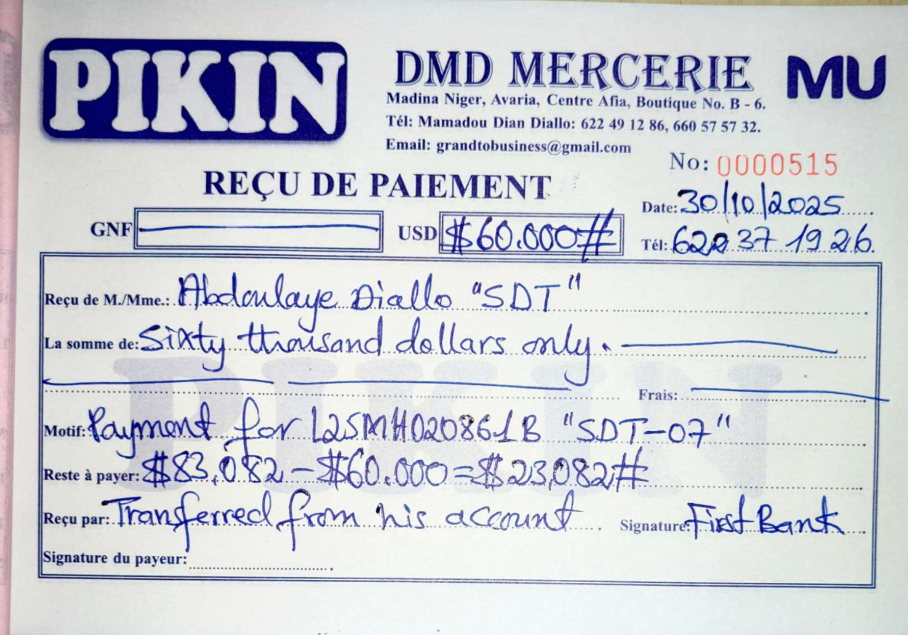 PIKIN
DMD MERCERIE
MU
Madina Niger, Avaria, Centre Afia, Boutique No. B - 6.
Tél: Mamadou Dian Diallo: 622 49 12 86, 660 57 57 32.
Email: grandtobusiness@gmail.com
No: 0000515
REÇU DE PAIEMENT
Date: 30/10/2025
GNF USD $60.000#
Tél: 622 37 19 26.
Reçu de M./Mme.: Abdoulaye Diallo "SDT"
La somme de: Sixty thousand dollars only.
Frais:
Motif: Payment for L25MH020861B "SDT-07"
Reste à payer: $83,082 - $60.000 = $23,082#
Reçu par: Transferred from his account Signature: First Bank
Signature du payeur:
PIKIN